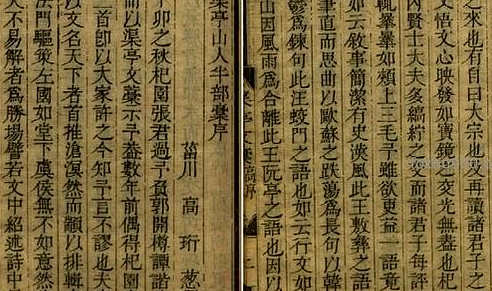 之來也有自曰大宗也及再讀諸君子之
文悟文心映發如寶鏡之交光無盡也杞
內賢士大夫多縞紵之交而諸君子每評
輒畢如頰上三毛乎雖欲更益一語竟
如云敘事簡潔有史漢風此王敷彝之語
筆直而思曲以歐蘇之跌蕩爲長句以韓
鬱爲鍊句此汪蛟門之語也如云行文如
山因風雨爲合離此王阮亭之語也因以
渠亭山人半部藁序
葘川 高珩 葱
丁卯之秋杞園張君過予負郭開樽譚諧
而以渠亭文藁示予葢數年前偶得杞園
一首卽以大家許之今知予言不謬也夫
以文名天下者首推滄溟然而顓以排輯
法門驅策左國如堂下虞侯無不如意然
人不易解者爲勝場譬若文中紹述詩中